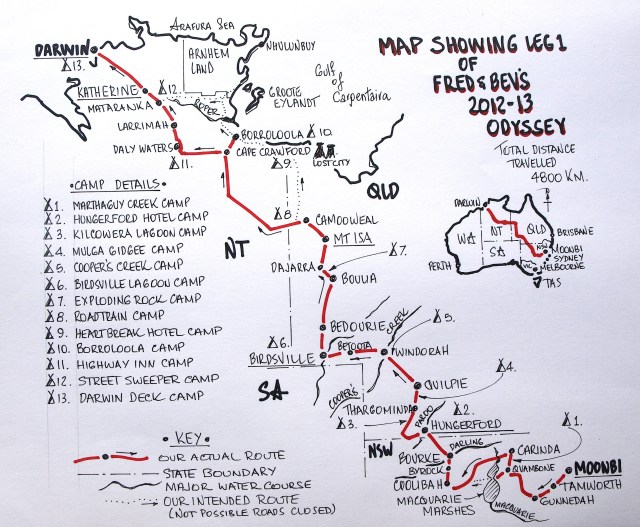 MAP SHOWING LEG 1
OF
FRED & BEV'S
2012-13
ODYSSEY
TOTAL DISTANCE
TRAVELLED
4800 KM.
DARWIN
WA
NT
QLD
SA
NSW
VIC
BRISBANE
MOONBI
SYDNEY
MELBOURNE
PERTH
TAS
ARAFURA SEA
DARWIN
13.
ARNHEM
LAND
NHULUNBUY
GULF
OF
CARPENTARIA
KATHERINE
12.
GROOTE
EYLANDT
MATARANKA
ROPER
LARRIMAH
BORROLOOLA
10.
DALY WATERS
CAPE CRAWFORD
LOST CITY
11.
9.
QLD
8.
CAMOOWEAL
NT
MT ISA
DAJARRA
7.
BOULIA
BEDOURIE
CREEK
5.
6.
BETOOTA
BIRDSVILLE
WINDORAH
4.
SA
COOPER'S
QUILPIE
THARGOMINDA
3.
PAROO
2.
HUNGERFORD
1.
NSW
DARLING
BOURKE
CARINDA
BYROCK
QUAMBONE
MOONBI
COOLIBAH
TAMWORTH
MACQUARIE
MARSHES
MACQUARIE
GUNNEDAH
• CAMP DETAILS •
1. MARTHAGUY CREEK CAMP
2. HUNGERFORD HOTEL CAMP
3. KILCOWERA LAGOON CAMP
4. MULGA GIDGEE CAMP
5. COOPER'S CREEK CAMP
6. BIRDSVILLE LAGOON CAMP
7. EXPLODING ROCK CAMP
8. ROADTRAIN CAMP
9. HEARTBREAK HOTEL CAMP
10. BORROLOOLA CAMP
11. HIGHWAY INN CAMP
12. STREET SWEEPER CAMP
13. DARWIN DECK CAMP
• KEY •
OUR ACTUAL ROUTE
STATE BOUNDARY
MAJOR WATER COURSE
OUR INTENDED ROUTE
(NOT POSSIBLE ROADS CLOSED)